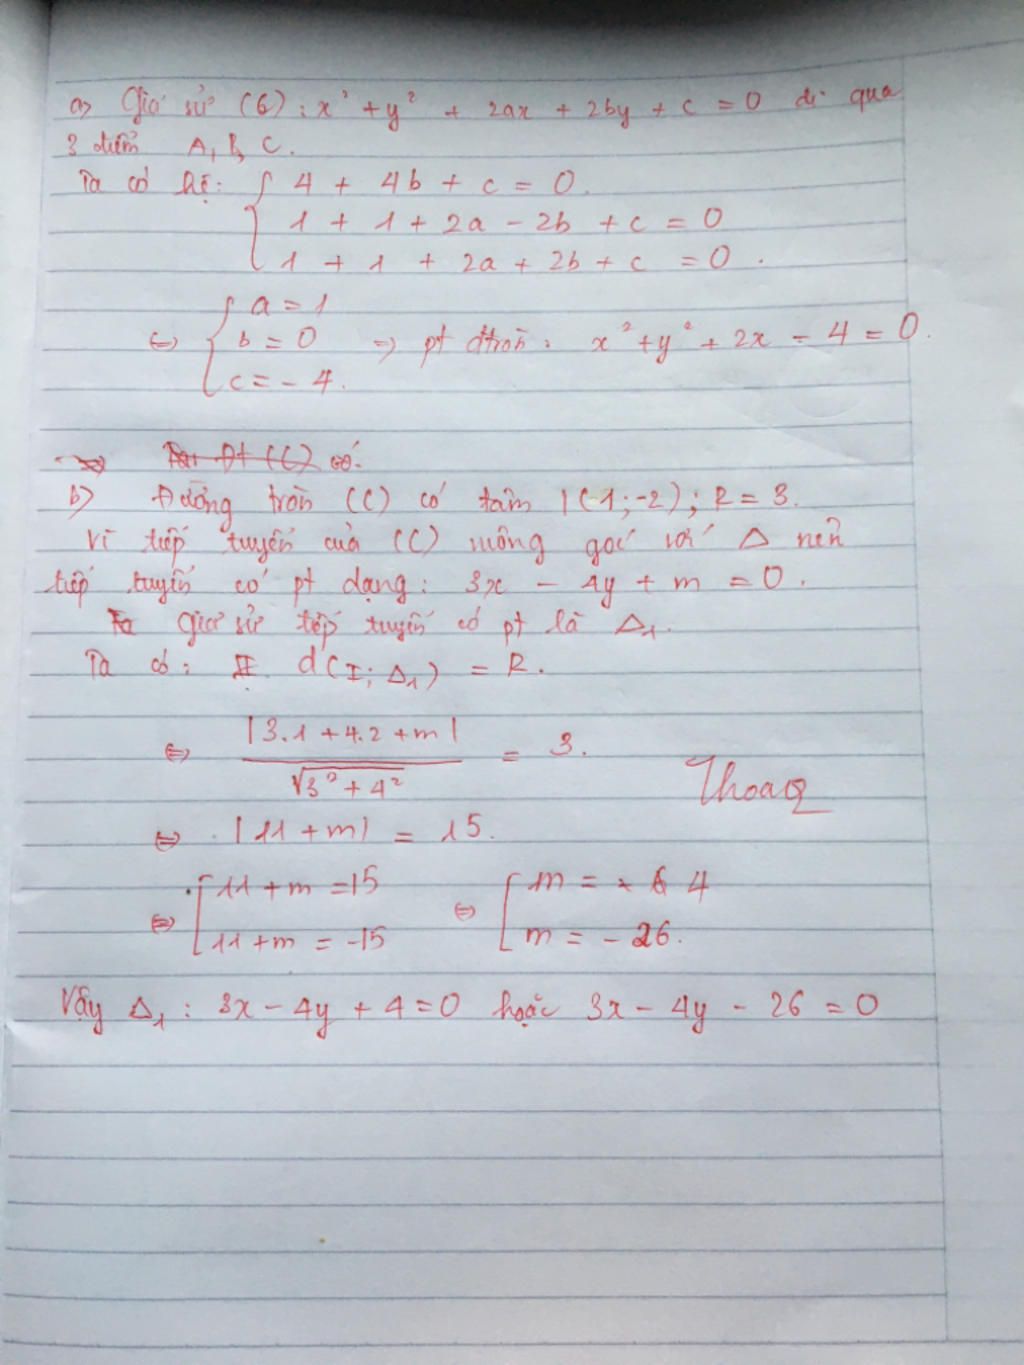 a> Giả sử (G): x² + y² + 2ax + 2by + c = 0 đi qua
3 điểm A, B, C.
Ta có hệ: { 4 + 4b + c = 0.
1 + 1 + 2a - 2b + c = 0
1 + 1 + 2a + 2b + c = 0.
⇔ { a = 1
b = 0 => pt đtròn: x² + y² + 2x - 4 = 0.
c = - 4.
Pt (C) có.
b> Đường tròn (C) có tâm I(-1;-2); R = 3.
Vì tiếp tuyến của (C) vuông góc với Δ nên
tiếp tuyến có pt dạng: 3x - 4y + m = 0.
Giả sử tiếp tuyến có pt là Δ₁.
Ta có: d(I; Δ₁) = R.
⇔ |3.1 + 4.2 + m| / √3² + 4² = 3.
Thoaq
⇔ |11 + m| = 15.
⇔ [ 11 + m = 15 ⇔ [ m = 4
11 + m = -15 m = - 26.
Vậy Δ₁ : 3x - 4y + 4 = 0 hoặc 3x - 4y - 26 = 0